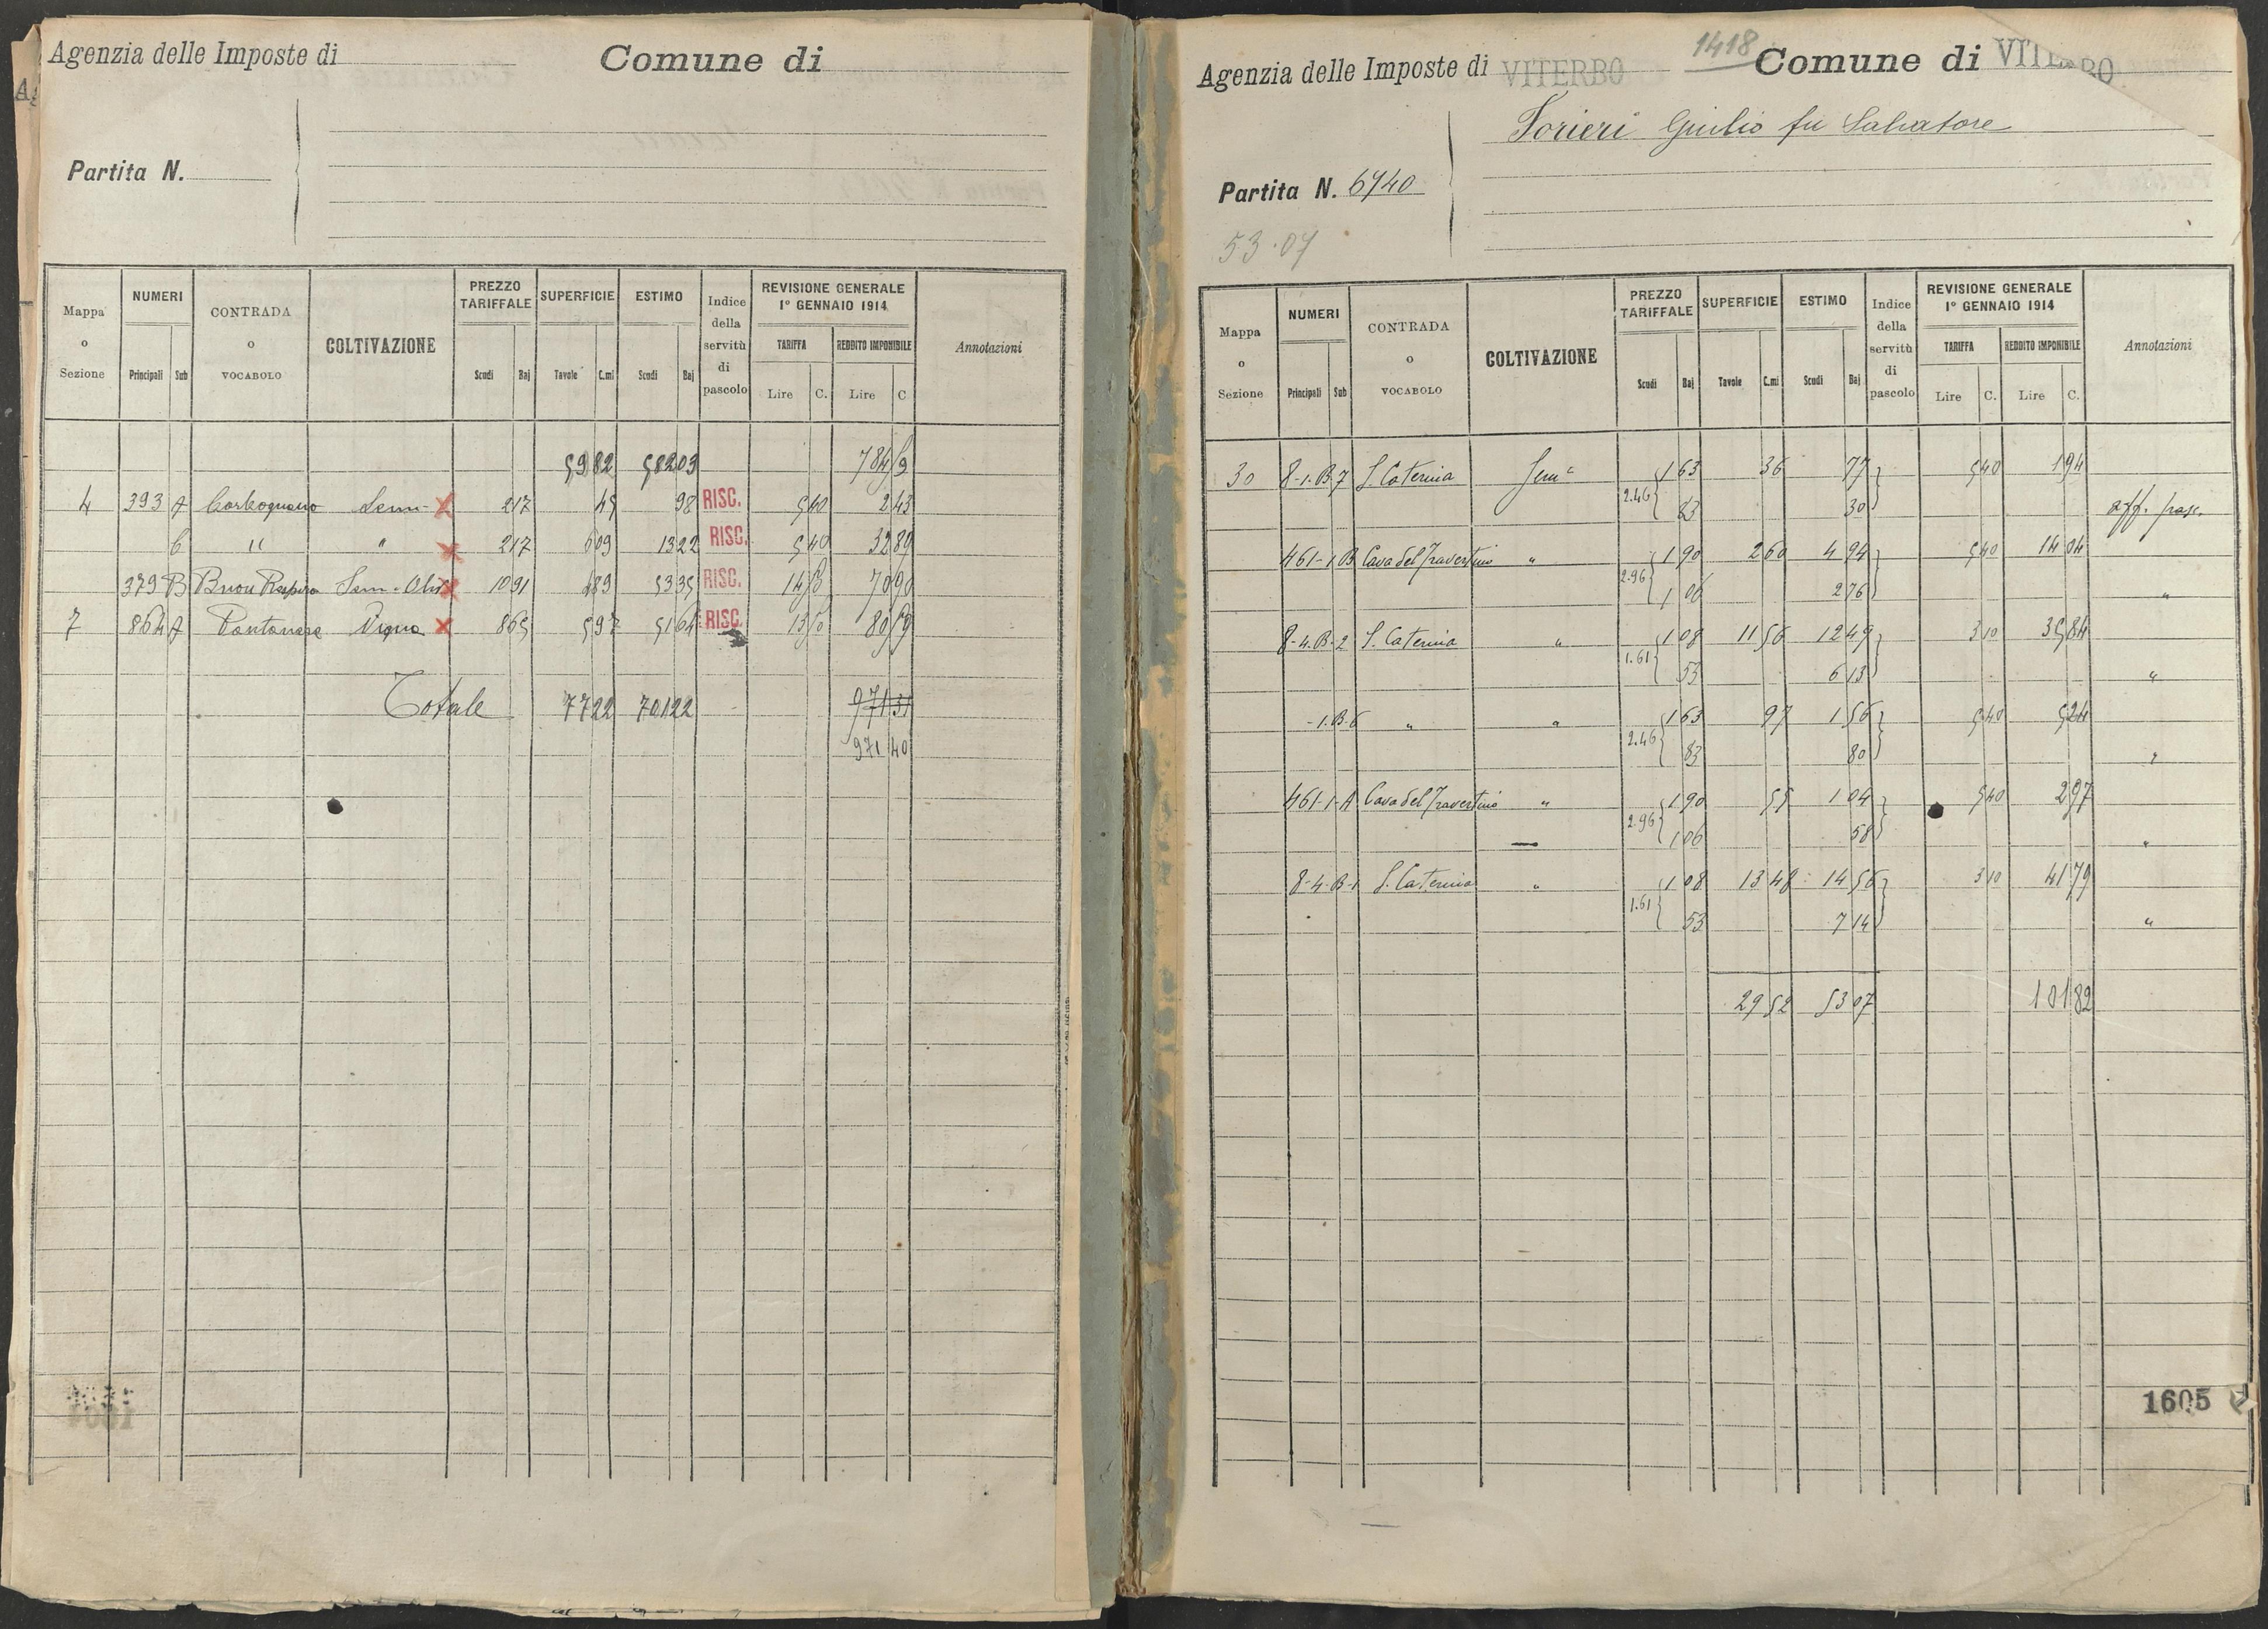 Agenzia delle Imposte di
Comune di
Partita N.
Mappa o Sezione | NUMERI Principali Sub | CONTRADA O VOCABOLO | COLTIVAZIONE | PREZZO TARIFFALE Scudi Baj | SUPERFICIE Tavole C.mi | ESTIMO Scudi Baj | Indice della servitù di pascolo | REVISIONE GENERALE 1° GENNAIO 1914 TARIFFA Lire C. REDDITO IMPONIBILE Lire C | Annotazioni
59 82 582 03 784
4 393 A Carcognano Sem- X 2 17 45 98 RISC. 5 40 2 43
b " " X 2 17 6 09 13 22 RISC. 5 40 32 89
379 B Buon Respiro Sem. Oliv X 10 91 4 89 53 35 RISC. 70 90
7 864 A Pantanese Vigna X 8 65 5 97 51 64 RISC.
Totale 77 22 701 22 971 31
971 40
Agenzia delle Imposte di VITERBO
1418
Comune di VITERBO
Torieri Giulio fu Salvatore
Partita N. 6740
53.07
Mappa o Sezione | NUMERI Principali Sub | CONTRADA O VOCABOLO | COLTIVAZIONE | PREZZO TARIFFALE Scudi Baj | SUPERFICIE Tavole C.mi | ESTIMO Scudi Baj | Indice della servitù di pascolo | REVISIONE GENERALE 1° GENNAIO 1914 TARIFFA Lire C. REDDITO IMPONIBILE Lire C. | Annotazioni
30 8-1-B-7 S. Caterina Sem.e 1 63 36 77 5 40 1 94
2.46 83 30 aff. pasc.
461-1 B Cava del Travertino " 1 90 2 60 4 94 5 40 14 04
2.96 1 06 2 76 "
8-4-B-2 S. Caterina " 1 08 11 56 12 49 3 10 35 84
1.61 53 6 13 "
-1.B.6 " " 1 63 97 1 56 5 40 5 24
2.46 83 80 "
461-1-A Cava del Travertino " 1 90 55 1 04 5 40 2 97
2.96 1 06 58 "
8-4-B-1 S. Caterina " 1 08 13 48 14 56 3 10 41 79
1.61 53 7 14 "
29 52 53 07 101 82
1605